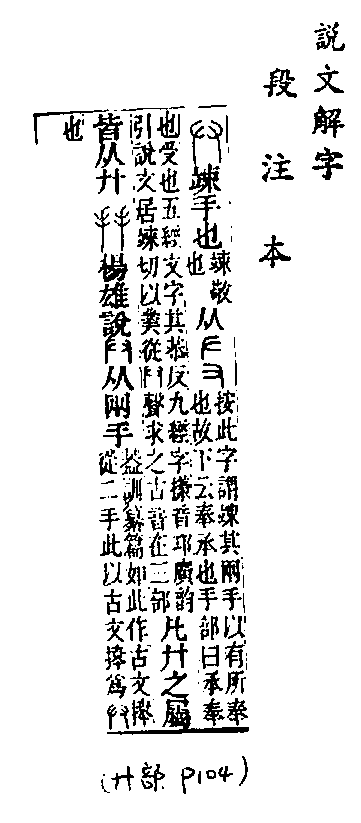 說文解字
段注本
竦手也竦敬也从𠂇又按此字謂竦其兩手以有所奉也故下云奉承也手部曰承奉
也受也五經文字其恭反九經字㨾音邛廣韵引說文居竦切以從廾聲求之古音在三部凡廾之屬
皆从廾楊雄說廾从兩手蓋訓纂篇如此作古文從二手此以古文爲廾
也
(廾部 P104)